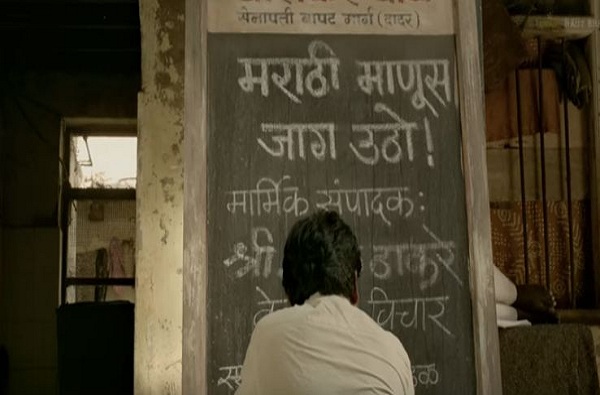 सेनापती बापट मार्ग (दादर)
मराठी माणूस
जाग उठो!
मार्मिक संपादक:
श्री. ठाकरे
विचार